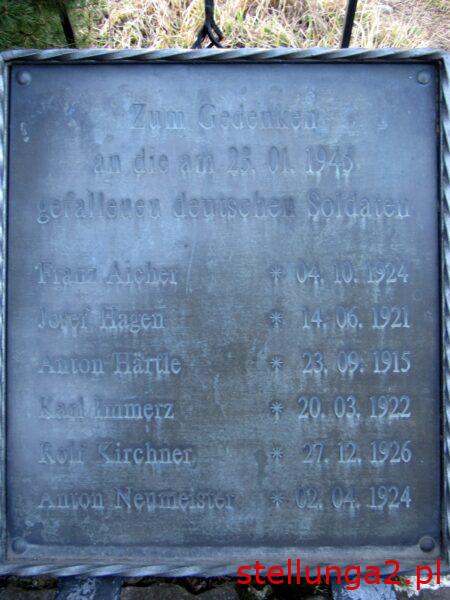 Zum Gedenken
an die am 23. 01. 1945
gefallenen deutschen Soldaten
Franz Aicher * 04. 10. 1924
Josef Hagen * 14. 06. 1921
Anton Härtle * 23. 09. 1915
Karl Immerz * 20. 03. 1922
Rolf Kirchner * 27. 12. 1926
Anton Neumeister * 02. 04. 1924
stellunga2.pl